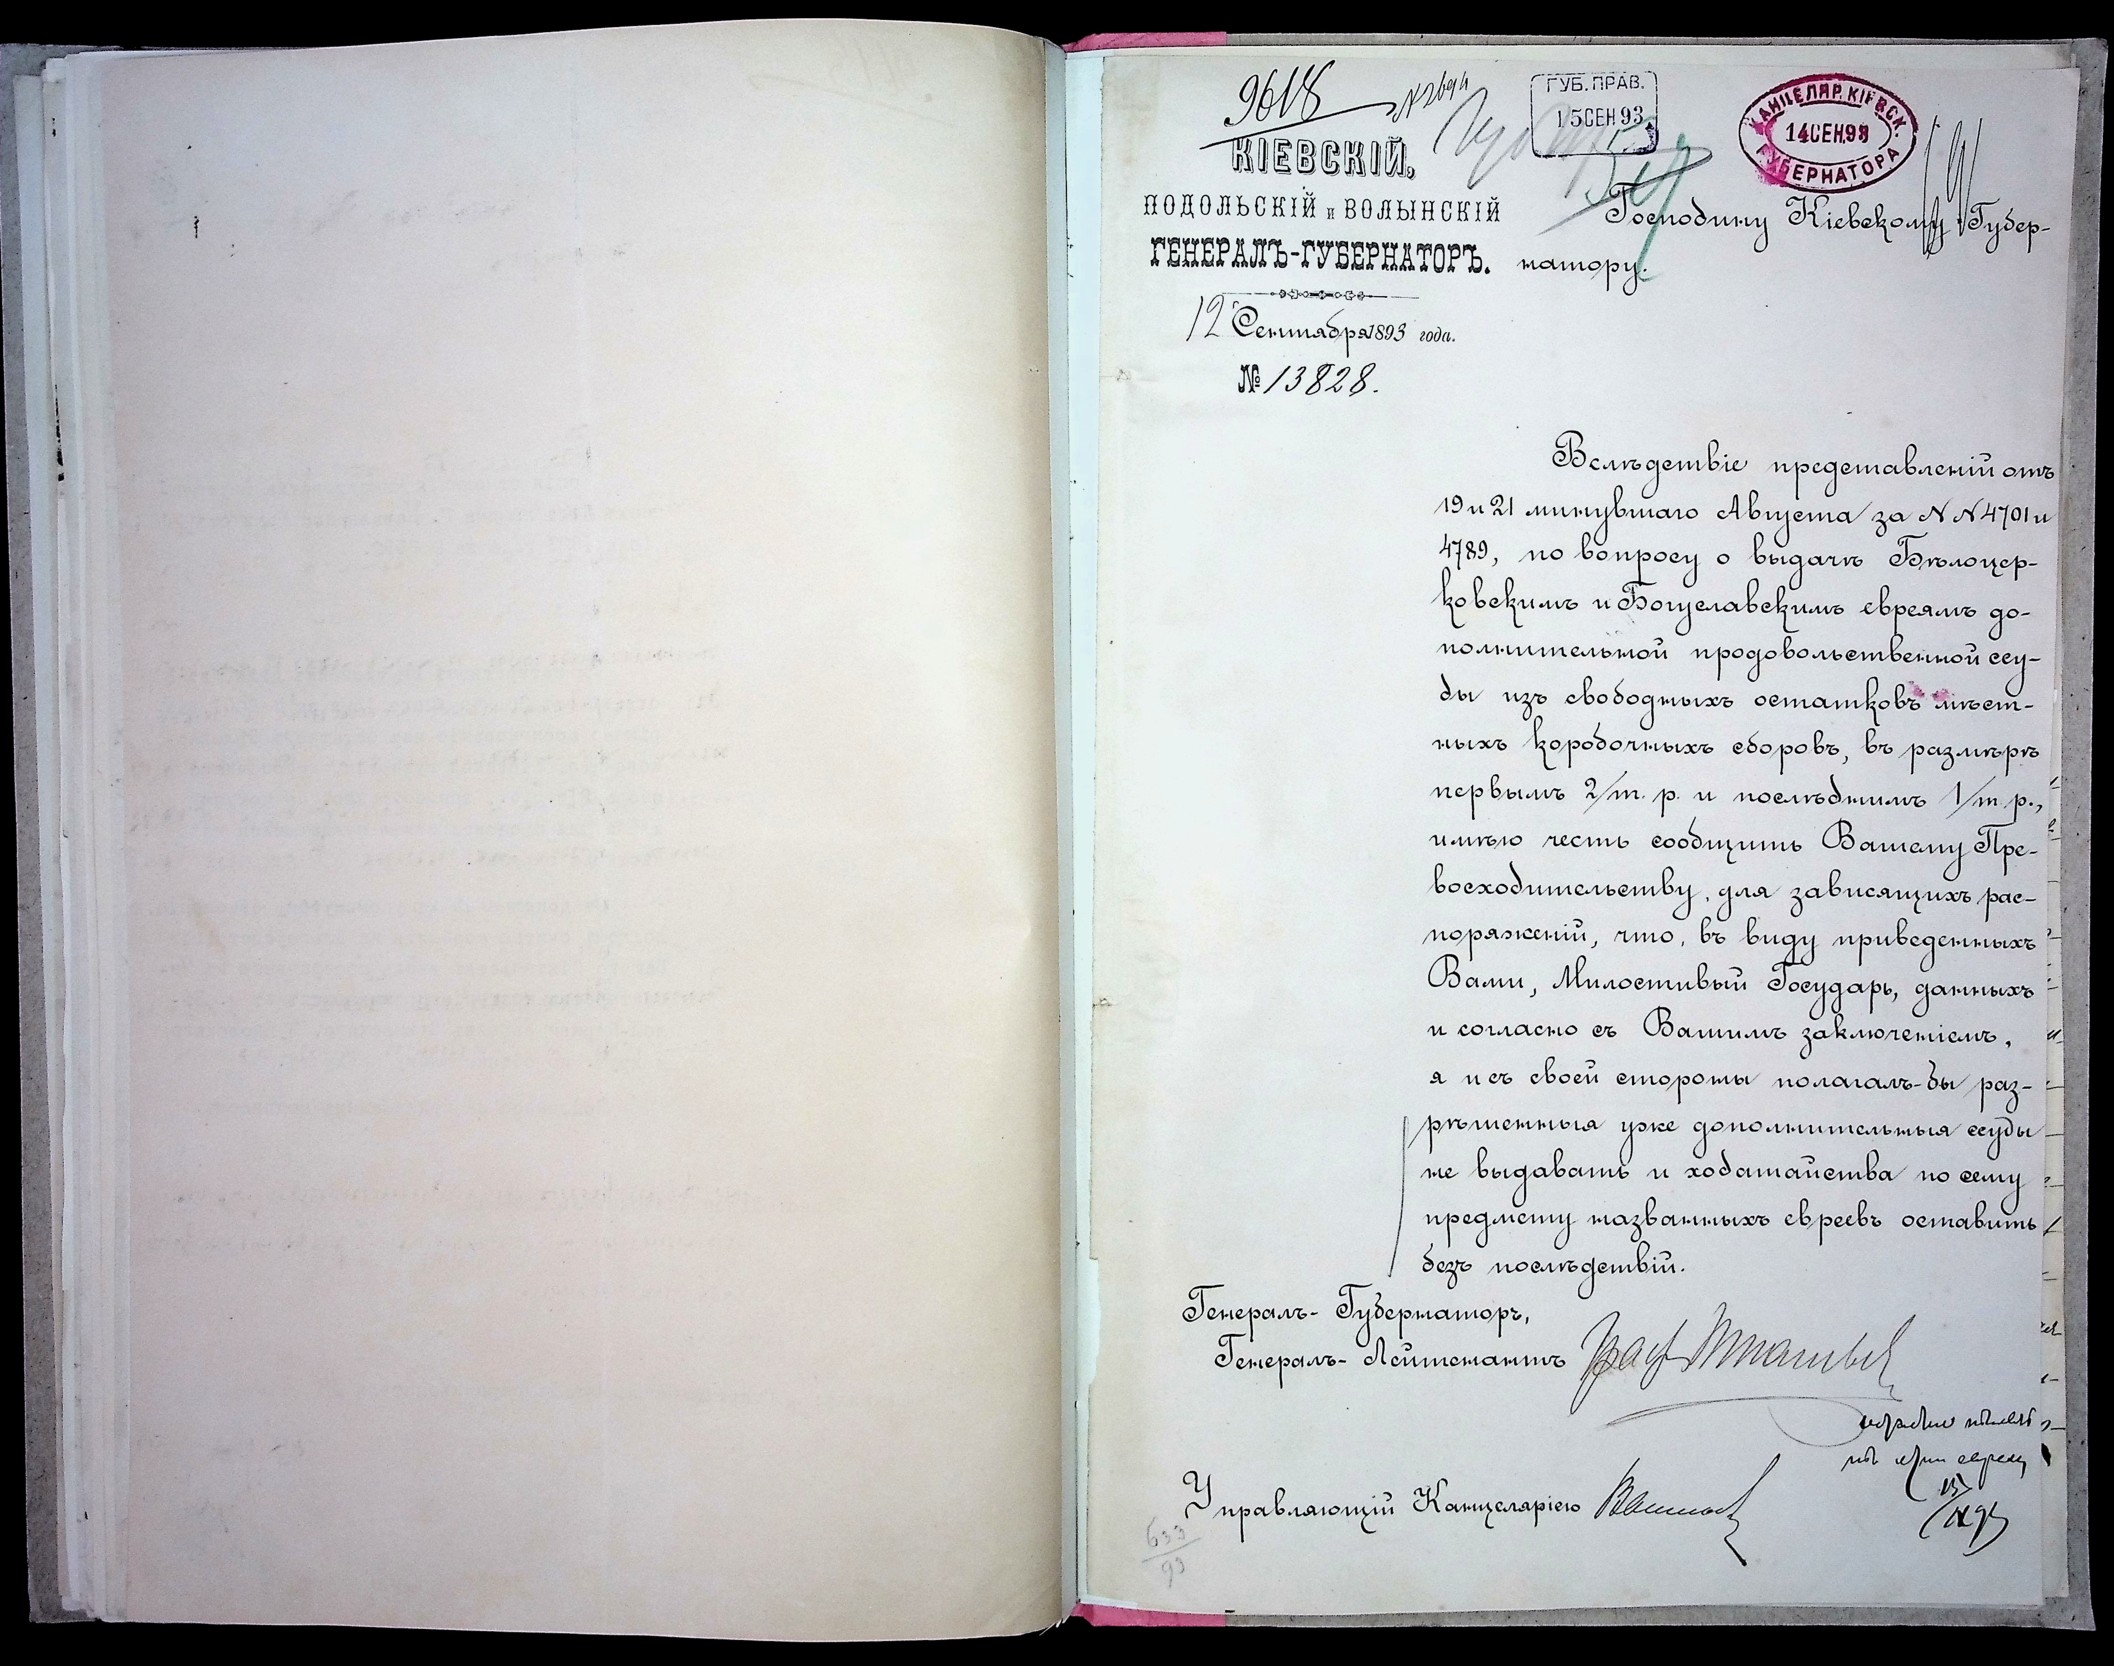 9618
№ 2694
ГУБ. ПРАВ.
15 СЕН 93
КАНЦЕЛЯР. КІЕВСК.
14 СЕН. 93
ГУБЕРНАТОРА
КІЕВСКІЙ,
ПОДОЛЬСКІЙ и ВОЛЫНСКІЙ
ГЕНЕРАЛЪ-ГУБЕРНАТОРЪ.
12 Сентября 1893 года.
№ 13828.
Господину Кіевскому Губер-
натору.
Вслѣдствіе представленій отъ
19 и 21 минувшаго Августа за N N 4701 и
4789, по вопросу о выдачѣ Бѣлоцер-
ковскимъ и Богуславскимъ евреямъ до-
полнительной продовольственной ссу-
ды изъ свободныхъ остатковъ мѣст-
ныхъ коробочныхъ сборовъ, въ размѣрѣ
первымъ 2/т. р. и послѣднимъ 1/т. р.,
имѣю честь сообщить Вашему Пре-
восходительству, для зависящихъ рас-
поряженій, что, въ виду приведенныхъ
Вами, Милостивый Государь, данныхъ
и согласно съ Вашимъ заключеніемъ,
я и съ своей стороны полагалъ-бы раз-
рѣшенныя уже дополнительныя ссуды
не выдавать и ходатайства по сему
предмету названныхъ евреевъ оставить
безъ послѣдствій.
Генералъ-Губернаторъ,
Генералъ-Лейтенантъ Граф Игнатьев
Управляющій Канцеляріею
633
93